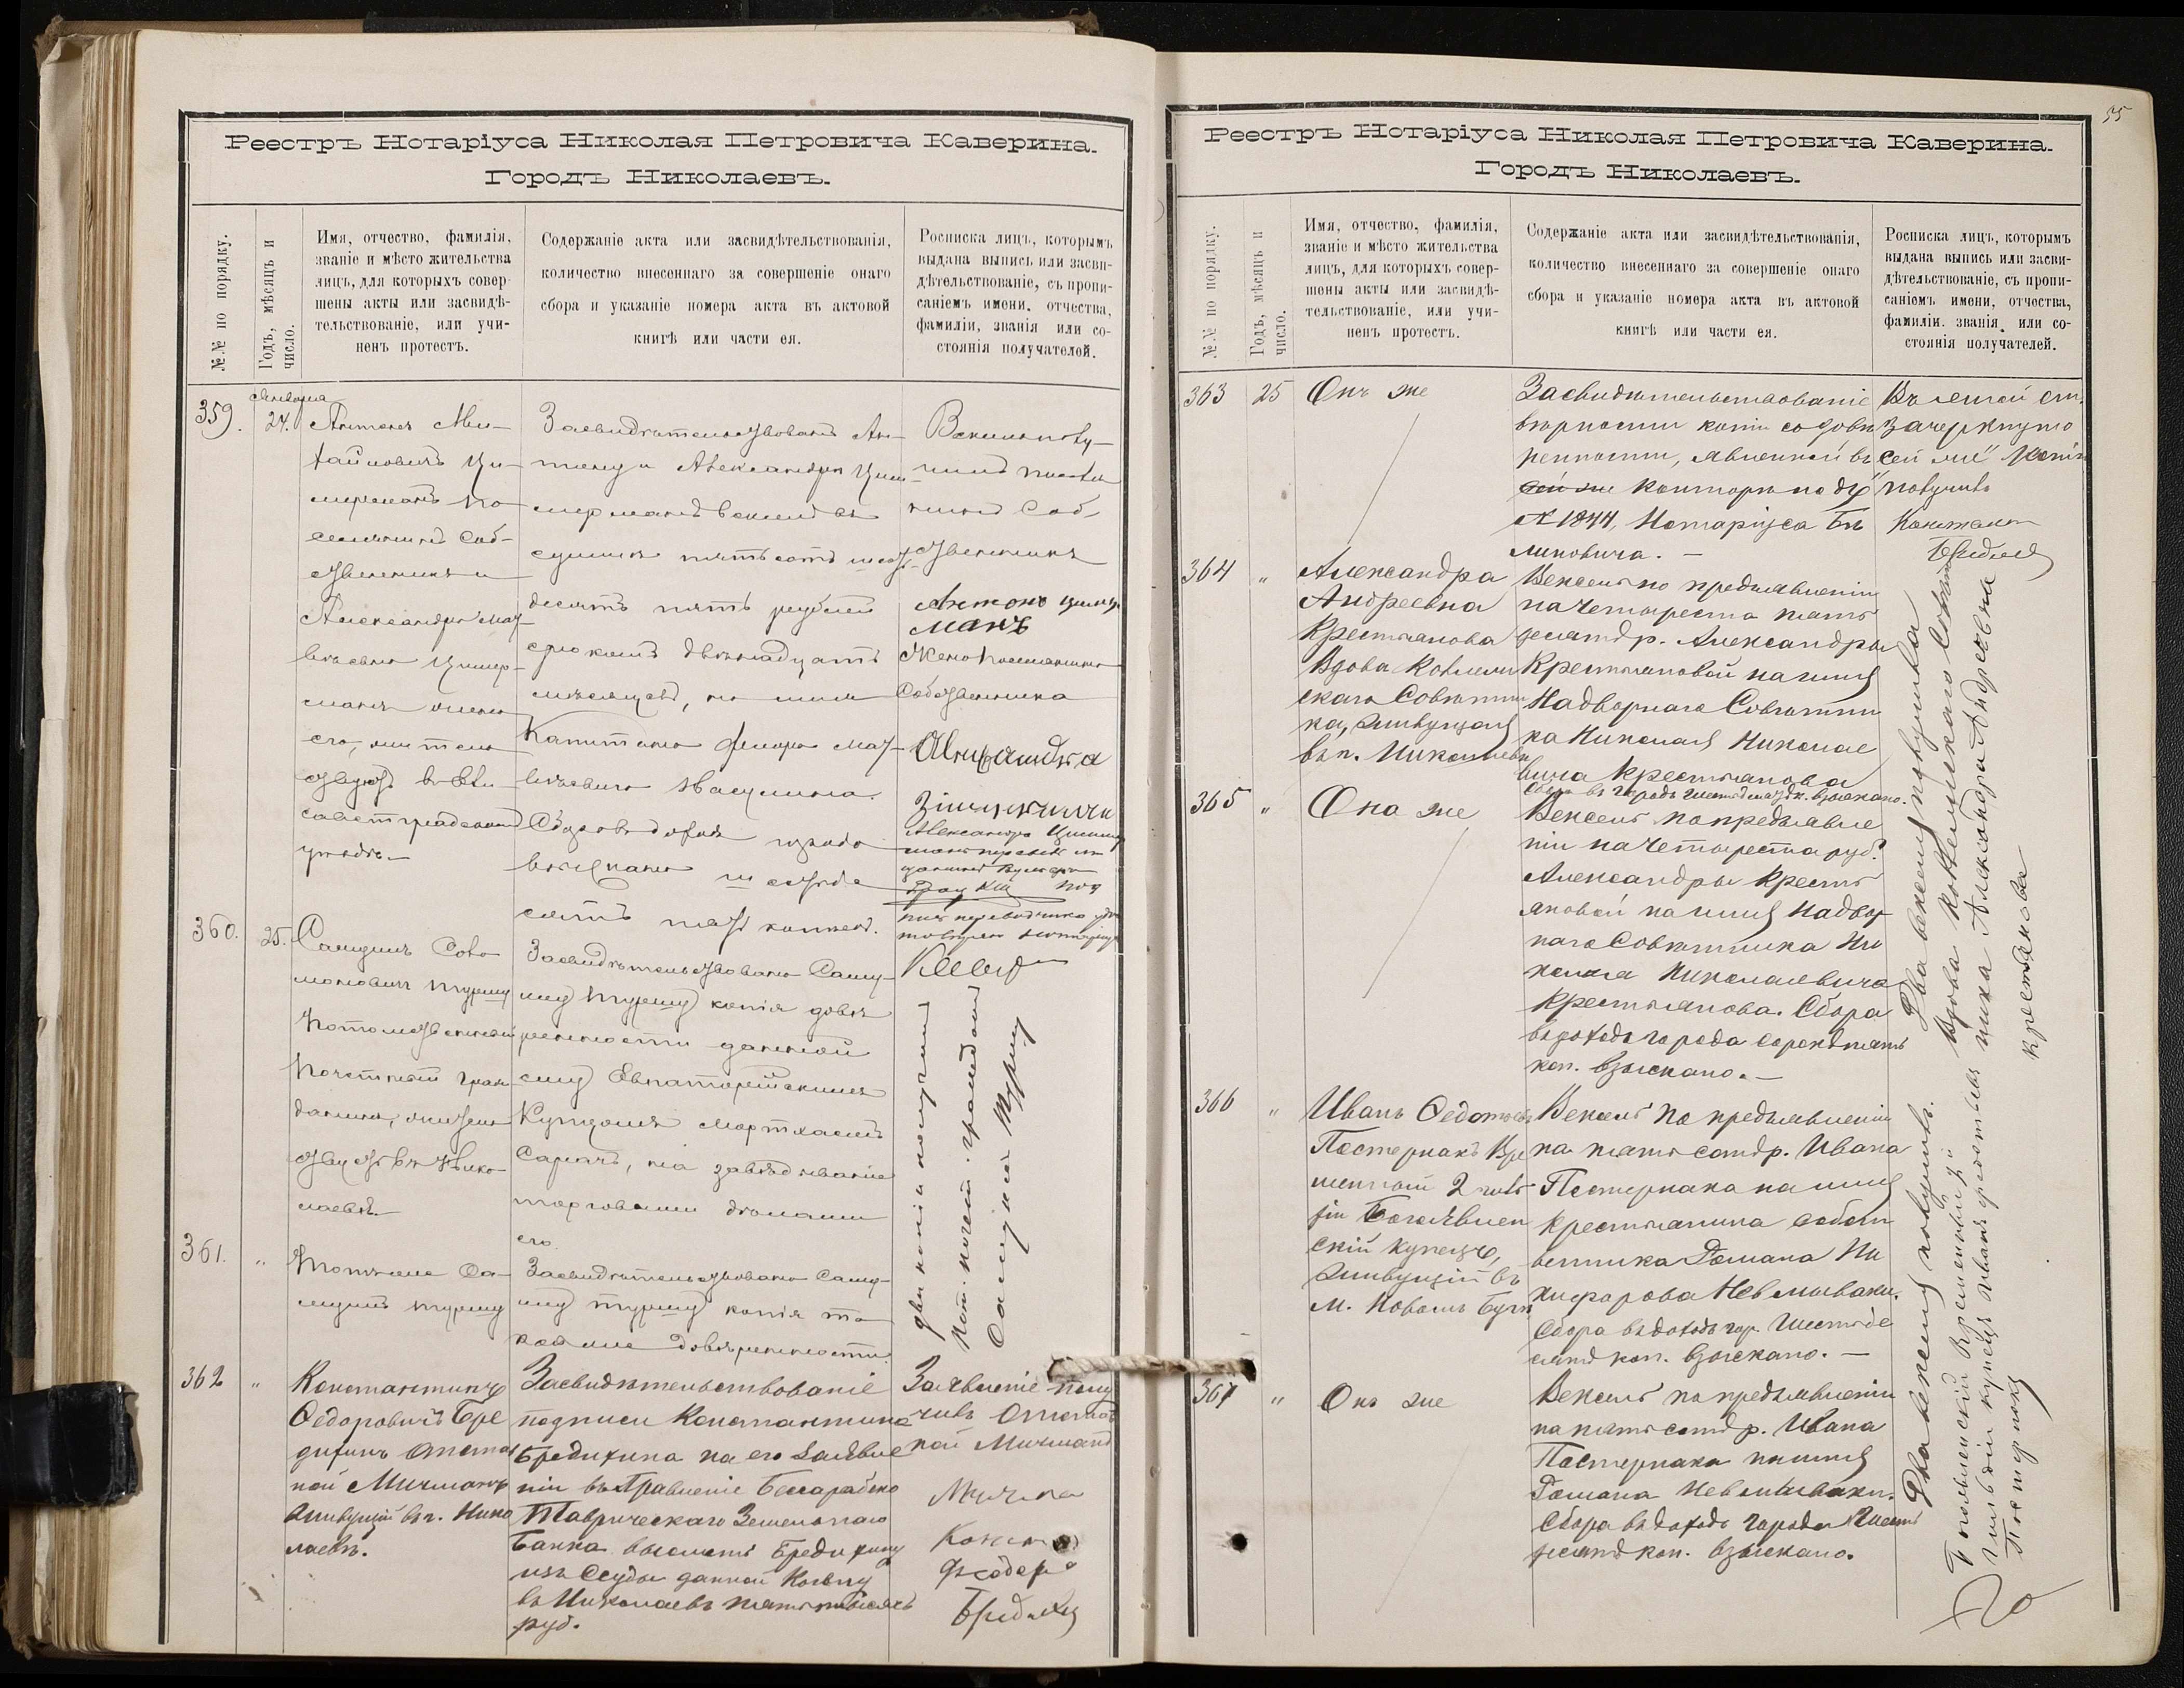 Реестръ Нотаріуса Николая Петровича Каверина.
Городъ Николаевъ.
№№ по порядку.
Годъ, мѣсяцъ и
число.
Имя, отчество, фамилія,
званіе и мѣсто жительства
лицъ, для которыхъ совер-
шены акты или засвидѣ-
тельствованіе, или учи-
ненъ протестъ.
Содержаніе акта или засвидѣтельствованія,
количество внесеннаго за совершеніе онаго
сбора и указаніе номера акта въ актовой
книгѣ или части ея.
Росписка лицъ, которымъ
выдана выпись или засви-
дѣтельствованіе, съ пропи-
саніемъ имени, отчества,
фамиліи, званія или со-
стоянія получателей.
359.
Января
24.
Антонъ Ми-
хайловичъ Ци-
мерманъ по-
селянинъ соб-
ственникъ и
Александра Мат-
вѣевна Цимер-
манъ жена
его, жительствуютъ
уѣздѣ.
Засвидѣтельствованъ Ан-
тону и Александрѣ Цим-
мерманъ вексель въ
суммѣ пятьсотъ шесть-
десятъ пять рублей
срокомъ двѣнадцать
мѣсяцевъ, на имя
Капитана Федора Мат-
вѣевича
Сбора въ доходъ города
взыскано шестьде-
сятъ пять копѣекъ.
Вексель полу-
чилъ поселя-
нинъ соб-
ственникъ
Антонъ Цимер-
манъ
Жена поселянина
собственника
Александра
360.
25.
Самуилъ Соло-
моновичъ Туршу
потомственный
почетный граж-
данинъ, житель-
ствуетъ въ Нико-
лаевѣ.
Засвидѣтельствована Саму-
илу Туршу копія довѣ-
ренности данной
ему Евпаторійскимъ
купцомъ
Сарачъ, на завѣдываніе
торговыми дѣлами
его.
Двѣ копіи получилъ
пот. почет. гражданинъ
Самуилъ Туршу
361.
"
Тотъ же Са-
муилъ Туршу
Засвидѣтельствована Саму-
илу Туршу копія та-
кой же довѣренности.
362
"
Константинъ
Ѳедоровичъ Бре
дихинъ Отстав
ной Мичманъ
живущій въ г. Нико
лаевѣ.
Засвидѣтельствованіе
подписи Константина
Бредихина на его заявле
ніи въ Правленіе Бессарабско
Таврическаго Земельнаго
Банка выслать Бредихину
изъ ссуды данной
въ Николаевъ пять тысячъ
руб.
Заявленіе полу
чилъ Отстав
ной Мичманъ
Бредихинъ
35
Реестръ Нотаріуса Николая Петровича Каверина.
Городъ Николаевъ.
№№ по порядку.
Годъ, мѣсяцъ и
число.
Имя, отчество, фамилія,
званіе и мѣсто жительства
лицъ, для которыхъ совер-
шены акты или засвидѣ-
тельствованіе, или учи-
ненъ протестъ.
Содержаніе акта или засвидѣтельствованія,
количество внесеннаго за совершеніе онаго
сбора и указаніе номера акта въ актовой
книгѣ или части ея.
Росписка лицъ, которымъ
выдана выпись или засви-
дѣтельствованіе, съ пропи-
саніемъ имени, отчества,
фамиліи, званія или со-
стоянія получателей.
363
25
Онъ же
Засвидѣтельствованіе
вѣрности копіи съ довѣ
ренности, явленной въ
сей же конторѣ по
№ 1844, Нотаріуса Бѣ
линовича. —
зачеркнуто
„сей же" копію
получилъ
Бредихинъ
364
"
Александра
Андреевна
Крестьянова
Вдова Коллеж
скаго Совѣтни
ка, живущая
въ г. Николаевѣ
Вексель по предъявленіи
на четыреста пять
десятъ р. Александры
Крестьяновой на имя
Надворнаго Совѣтни
ка Николая Николае
вича Крестьянова
365
"
Она же
Вексель по предъявле
ніи на четыреста руб.
Александры Кресть
яновой на имя Надвор
наго Совѣтника Ни
колая Николаевича
Крестьянова. Сбора
въ доходъ города сорокъ пять
коп. взыскано. —
Два векселя получила
Вдова Коллежскаго Совѣт
ника Александра Андреевна
Крестьянова
366
"
Иванъ Ѳедотовъ
Пастернакъ Вре
менный 2 гиль
діи
скій купецъ,
живущій въ
Вексель по предъявленіи
на пятьсотъ р. Ивана
Пастернака на имя
крестьянина собст
венника Романа Ни
кифорова Невмываки.
Сбора въ доходъ гор. шестьде
сятъ коп. взыскано. —
367
"
Онъ же
Вексель по предъявленіи
на пятьсотъ р. Ивана
Пастернака на имя
Романа Невмываки.
Сбора въ доходъ города шесть
десятъ коп. взыскано.
Два векселя получилъ.
Временный 2й
гильдіи купецъ Иванъ Ѳедотовъ
Пастернакъ